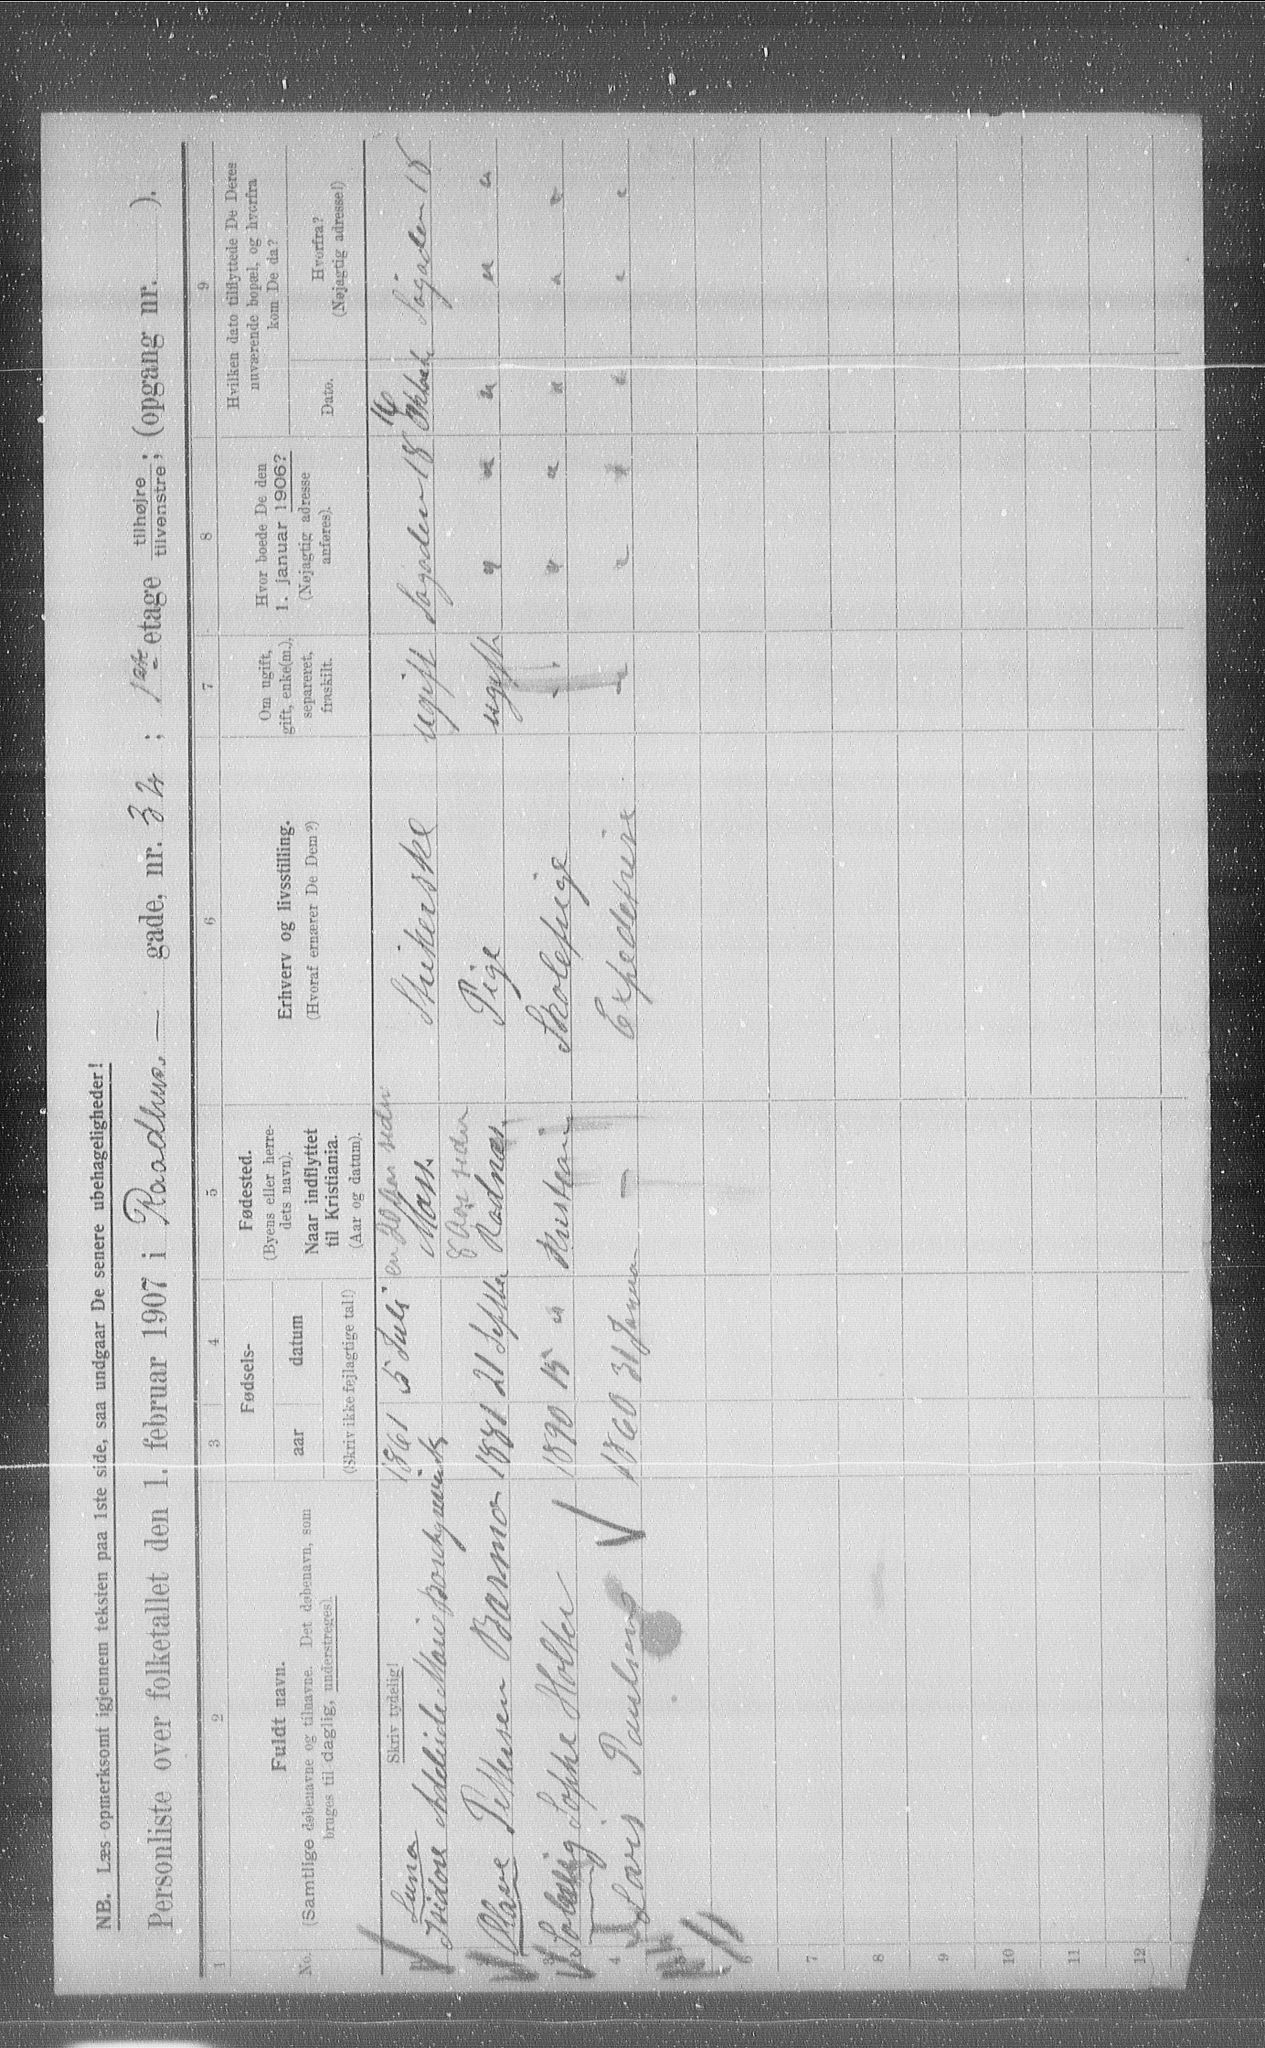 NB. Læs opmerksomt igjennem teksten paa 1ste side, saa undgaar De senere ubehageligheder!
Personliste over folketallet den 1. februar 1907 i Raadhus — gade, nr. 34 ; 1ste etage tilhøjre tilvenstre; (opgang nr. ).
1 2 3 4 5 6 7 8 9
No.
Fuldt navn.
(Samtlige døbenavne og tilnavne. Det døbenavn, som
bruges til daglig, understreges).
Fødsels-
aar datum
(Skriv ikke fejlagtige tal!)
Fødested.
(Byens eller herre-
dets navn).
Naar indflyttet
til Kristiania.
(Aar og datum).
Erhverv og livsstilling.
(Hvoraf ernærer De Dem?)
Om ugift,
gift, enke(m.),
separeret,
fraskilt.
Hvor boede De den
1. januar 1906?
(Nøjagtig adresse
anføres).
Hvilken dato tilflyttede De Deres
nuværende bopæl, og hvorfra
kom De da?
Dato.
Hvorfra?
(Nøjagtig adresse!)
Skriv tydelig!
Luna 1861 5 Juli Moss ugift 18
Adelaide Marie
Olave Pettersen 1881 21 Septber 8 Aar siden Pige ugift " " " " "
3 Solveig Sophie Holter 1890 15 " Kristiania Skolepige " " " " " "
4 Lars Paulsen 1860 31 Januar — " " " " "
6
7
8
9
10
11
12